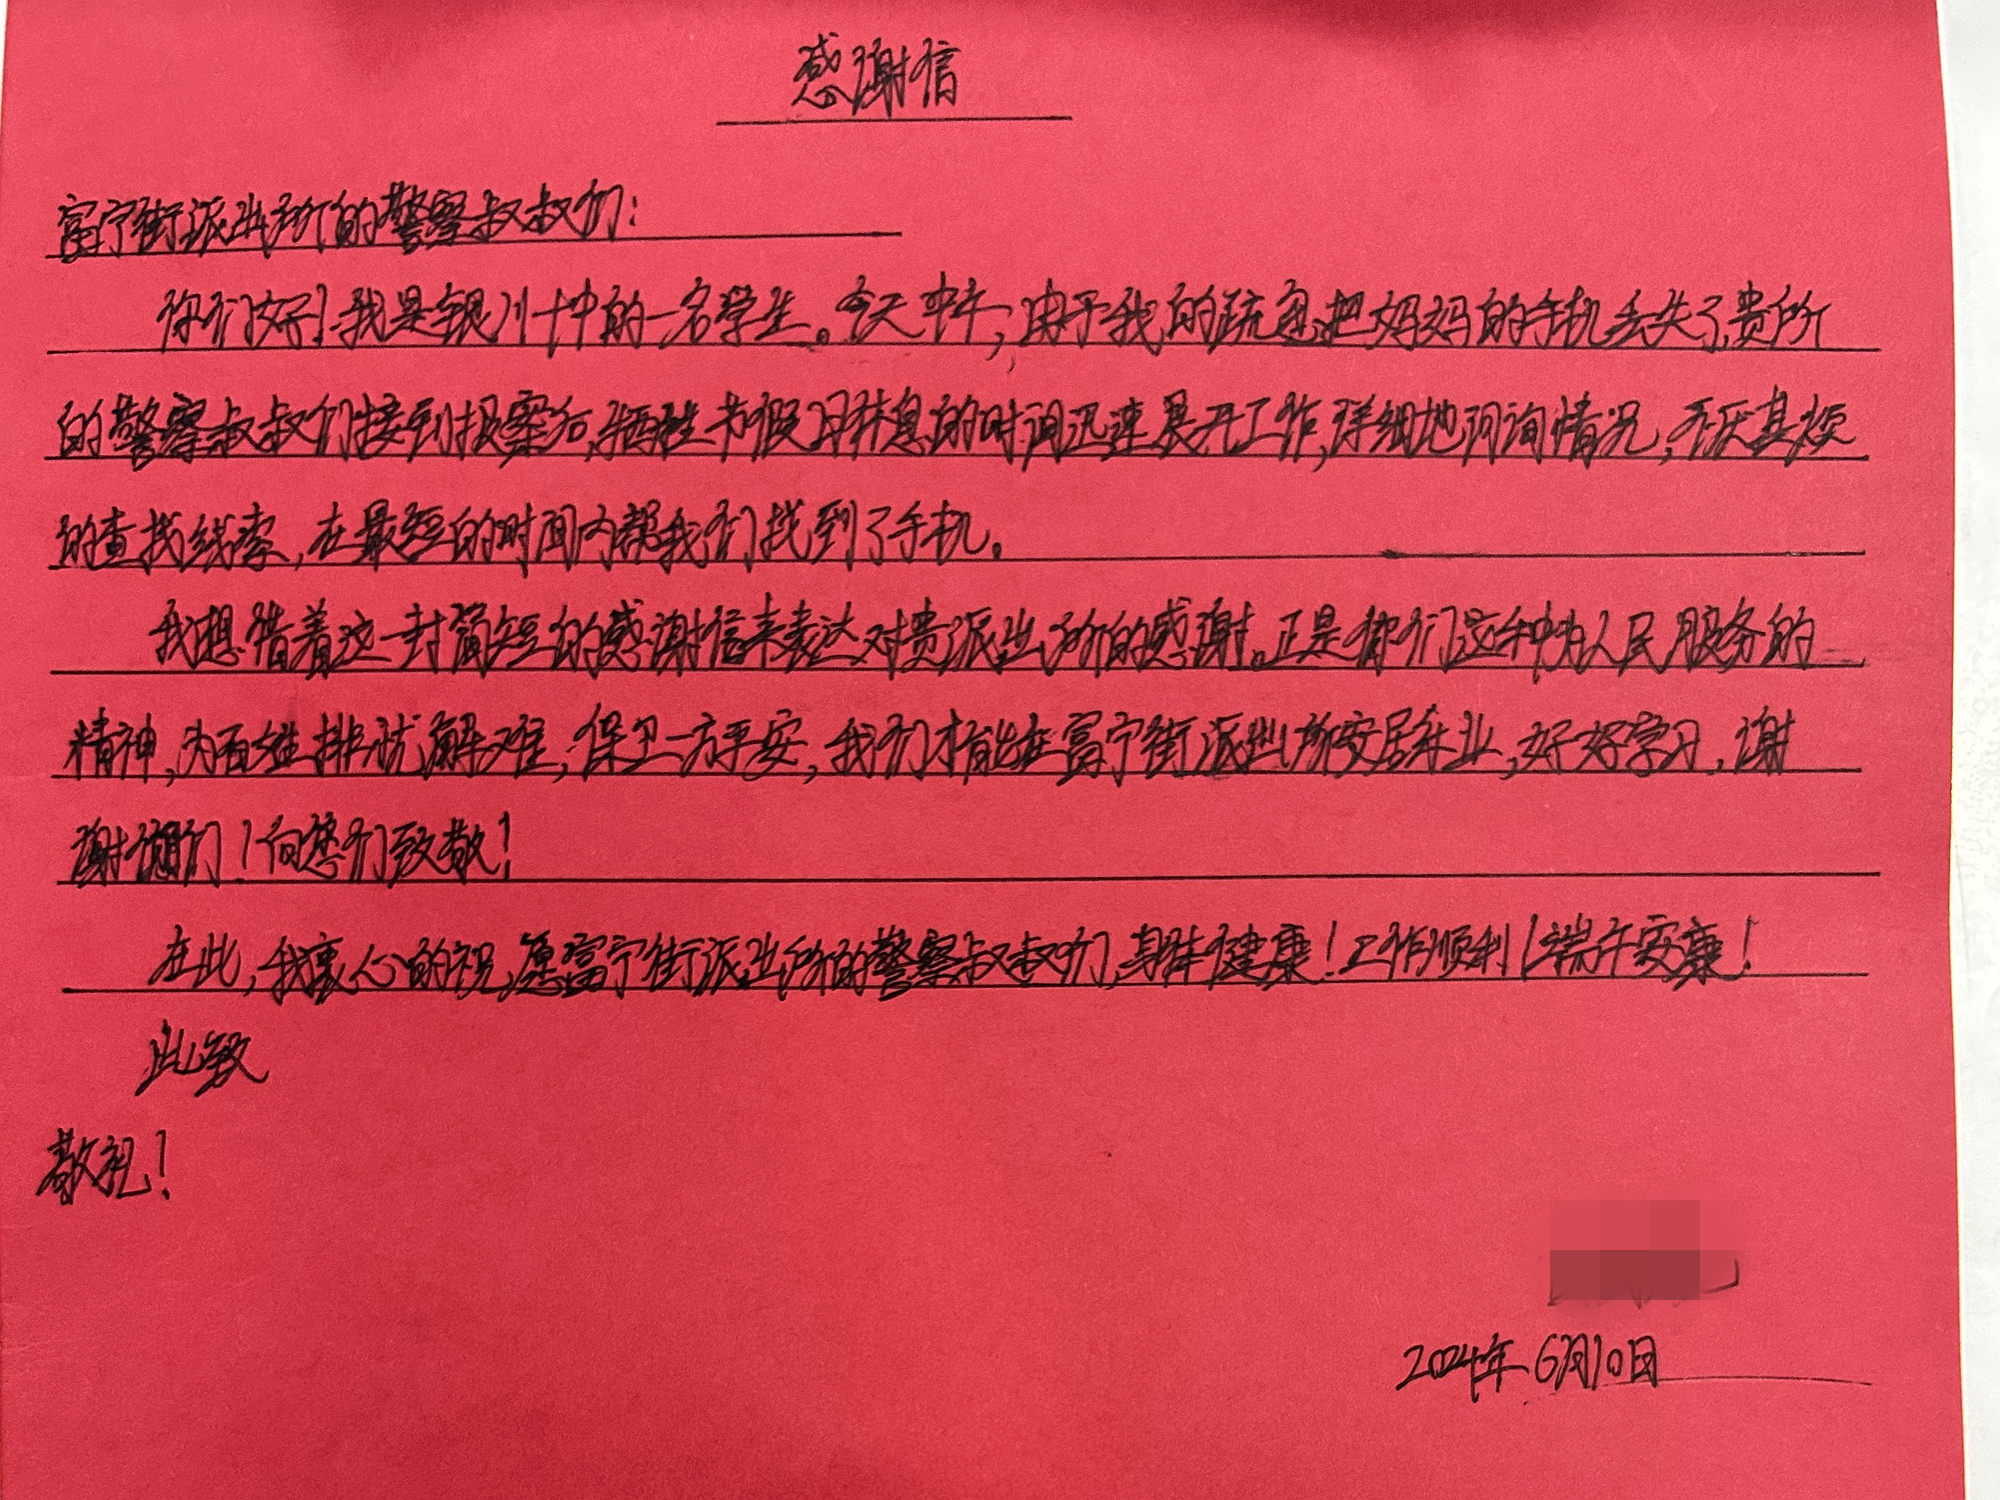 感谢信
富宁街派出所的警察叔叔们:
你们好!我是银川十中的一名学生。今天中午,由于我的疏忽把妈妈的手机丢失了,贵所
的警察叔叔们接到报案后,牺牲节假日休息的时间迅速展开工作,详细地询问情况,不厌其烦
的查找线索,在最短的时间内帮我们找到了手机。
我想借着这一封简短的感谢信来表达对贵派出所的感谢。正是你们这种为人民服务的
精神,为百姓排忧解难,保卫一方平安,我们才能在富宁街派出所安居乐业,好好学习,谢
谢你们!向您们致敬!
在此,我衷心的祝愿富宁街派出所的警察叔叔们,身体健康!工作顺利!端午安康!
此致
敬礼!
2024年6月10日